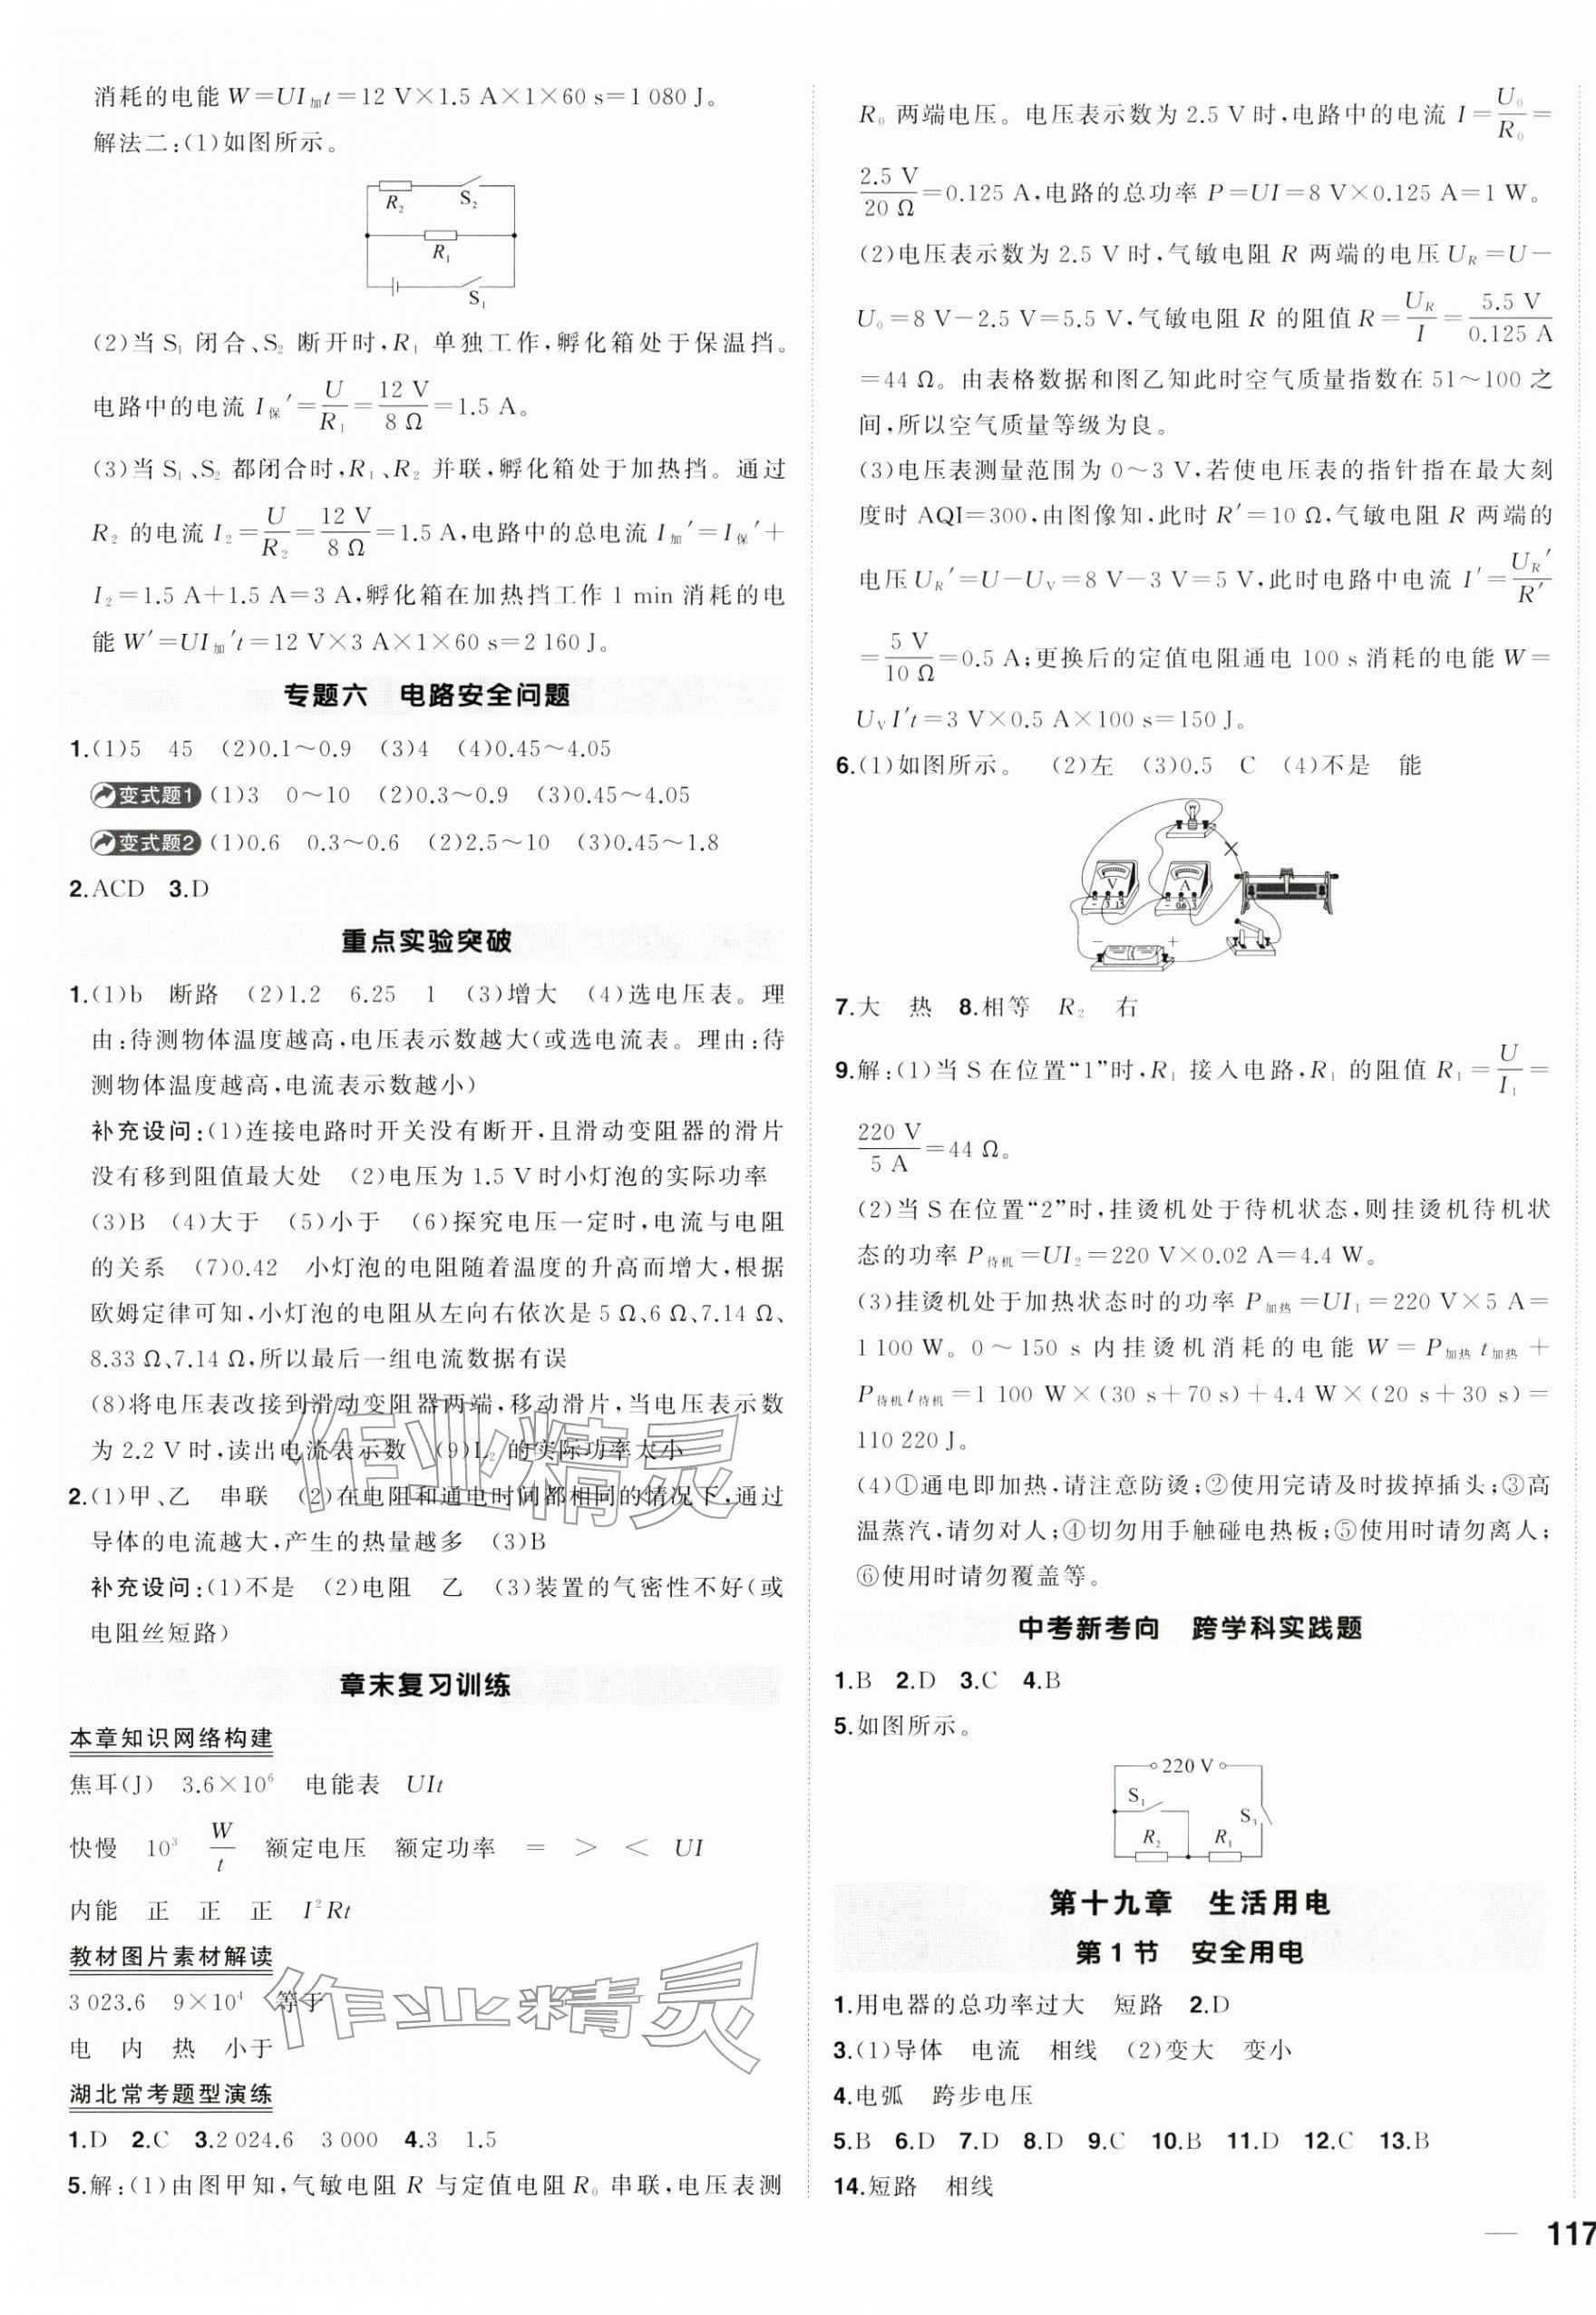 消耗的电能 W=UI加t=12 V×1.5 A×1×60 s=1 080 J。
解法二:(1)如图所示。
R₂ S₂
R₁
S₁
(2)当 S₁ 闭合、S₂ 断开时,R₁ 单独工作,孵化箱处于保温挡。
电路中的电流 I保′=U/R₁=12 V/8 Ω=1.5 A。
(3)当 S₁、S₂ 都闭合时,R₁、R₂ 并联,孵化箱处于加热挡。通过
R₂ 的电流 I₂=U/R₂=12 V/8 Ω=1.5 A,电路中的总电流 I加′=I保′+
I₂=1.5 A+1.5 A=3 A,孵化箱在加热挡工作 1 min 消耗的电
能 W′=UI加′t=12 V×3 A×1×60 s=2 160 J。
专题六 电路安全问题
1.(1)5 45 (2)0.1～0.9 (3)4 (4)0.45～4.05
变式题1 (1)3 0～10 (2)0.3～0.9 (3)0.45～4.05
变式题2 (1)0.6 0.3～0.6 (2)2.5～10 (3)0.45～1.8
2.ACD 3.D
重点实验突破
1.(1)b 断路 (2)1.2 6.25 1 (3)增大 (4)选电压表。理
由:待测物体温度越高,电压表示数越大(或选电流表。理由:待
测物体温度越高,电流表示数越小)
补充设问:(1)连接电路时开关没有断开,且滑动变阻器的滑片
没有移到阻值最大处 (2)电压为 1.5 V 时小灯泡的实际功率
(3)B (4)大于 (5)小于 (6)探究电压一定时,电流与电阻
的关系 (7)0.42 小灯泡的电阻随着温度的升高而增大,根据
欧姆定律可知,小灯泡的电阻从左向右依次是 5 Ω、6 Ω、7.14 Ω、
8.33 Ω、7.14 Ω,所以最后一组电流数据有误
(8)将电压表改接到滑动变阻器两端,移动滑片,当电压表示数
为 2.2 V 时,读出电流表示数 (9)L₂ 的实际功率太小
2.(1)甲、乙 串联 (2)在电阻和通电时间都相同的情况下,通过
导体的电流越大,产生的热量越多 (3)B
补充设问:(1)不是 (2)电阻 乙 (3)装置的气密性不好(或
电阻丝短路)
章末复习训练
本章知识网络构建
焦耳(J) 3.6×10⁶ 电能表 UIt
快慢 10³ W/t 额定电压 额定功率 = > < UI
内能 正 正 正 I²Rt
教材图片素材解读
3 023.6 9×10⁴ 等于
电 内 热 小于
湖北常考题型演练
1.D 2.C 3.2 024.6 3 000 4.3 1.5
5.解:(1)由图甲知,气敏电阻 R 与定值电阻 R₀ 串联,电压表测
作业精灵
作业精灵
R₀ 两端电压。电压表示数为 2.5 V 时,电路中的电流 I=U₀/R₀=
2.5 V/20 Ω=0.125 A,电路的总功率 P=UI=8 V×0.125 A=1 W。
(2)电压表示数为 2.5 V 时,气敏电阻 R 两端的电压 U_R=U−
U₀=8 V−2.5 V=5.5 V,气敏电阻 R 的阻值 R=U_R/I=5.5 V/0.125 A
=44 Ω。由表格数据和图乙知此时空气质量指数在 51～100 之
间,所以空气质量等级为良。
(3)电压表测量范围为 0～3 V,若使电压表的指针指在最大刻
度时 AQI=300,由图像知,此时 R′=10 Ω,气敏电阻 R 两端的
电压 U_R′=U−U_V=8 V−3 V=5 V,此时电路中电流 I′=U_R′/R′
=5 V/10 Ω=0.5 A;更换后的定值电阻通电 100 s 消耗的电能 W=
U_V I′t=3 V×0.5 A×100 s=150 J。
6.(1)如图所示。 (2)左 (3)0.5 C (4)不是 能
V A
− 3 15 − 0.6 3
− +
7.大 热 8.相等 R₂ 右
9.解:(1)当 S 在位置“1”时,R₁ 接入电路,R₁ 的阻值 R₁=U/I₁=
220 V/5 A=44 Ω。
(2)当 S 在位置“2”时,挂烫机处于待机状态,则挂烫机待机状
态的功率 P待机=UI₂=220 V×0.02 A=4.4 W。
(3)挂烫机处于加热状态时的功率 P加热=UI₁=220 V×5 A=
1 100 W。0～150 s 内挂烫机消耗的电能 W=P加热t加热+
P待机t待机=1 100 W×(30 s+70 s)+4.4 W×(20 s+30 s)=
110 220 J。
(4)①通电即加热,请注意防烫;②使用完请及时拔掉插头;③高
温蒸汽,请勿对人;④切勿用手触碰电热板;⑤使用时请勿离人;
⑥使用时请勿覆盖等。
中考新考向 跨学科实践题
1.B 2.D 3.C 4.B
5.如图所示。
220 V
S₁ S₃
R₂ R₁
第十九章 生活用电
第 1 节 安全用电
1.用电器的总功率过大 短路 2.D
3.(1)导体 电流 相线 (2)变大 变小
4.电弧 跨步电压
5.B 6.D 7.D 8.D 9.C 10.B 11.D 12.C 13.B
14.短路 相线
— 117